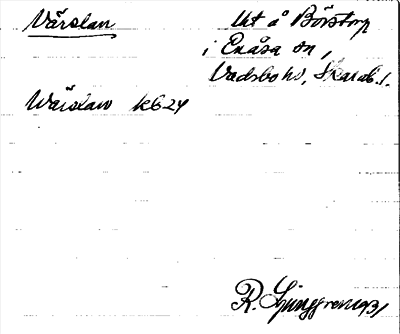 Värslan Ut å Börstorp
i Enåsa sn,
Vadsbo hd, Skarab. l.
Wärslaw k624
R. Ljunggren 1931